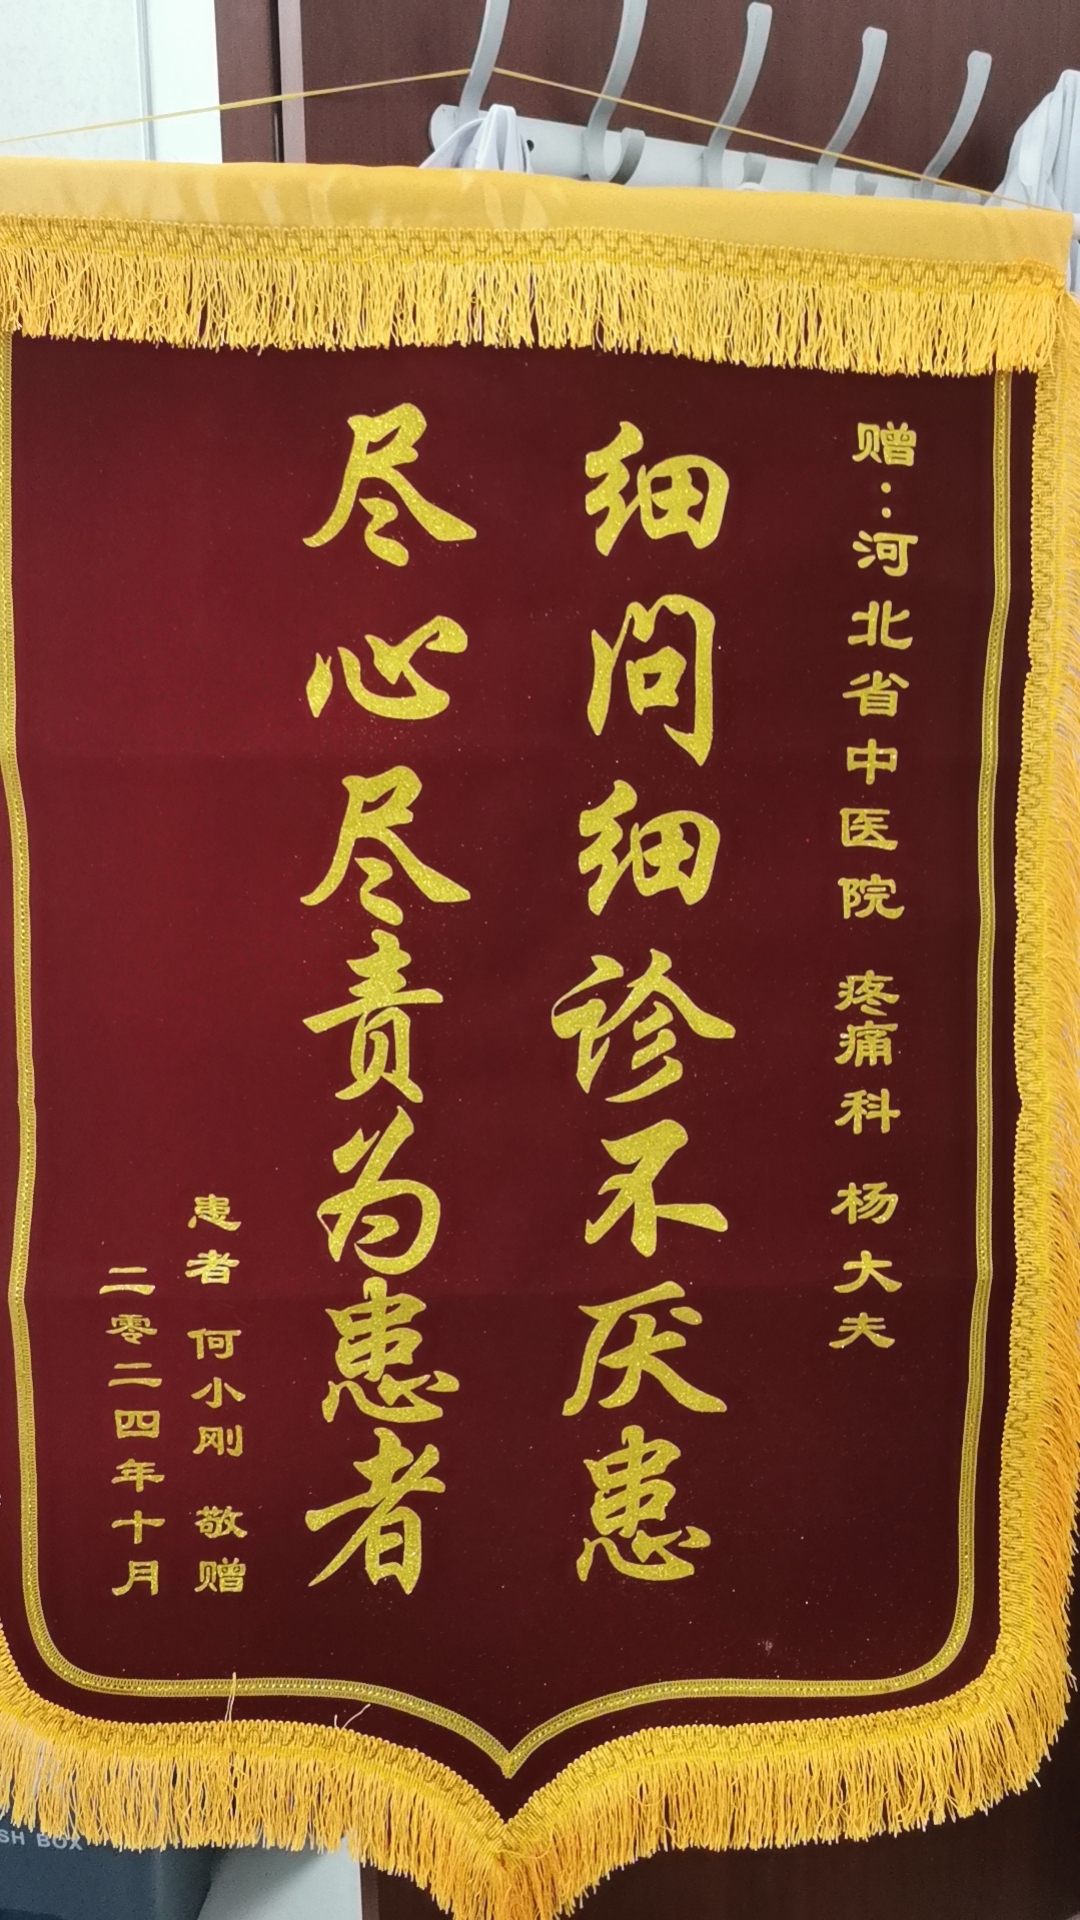 赠：河北省中医院 疼痛科 杨大夫
细问细诊不厌患
尽心尽责为患者
患者 何小刚 敬赠
二零二四年十月
SH BOX